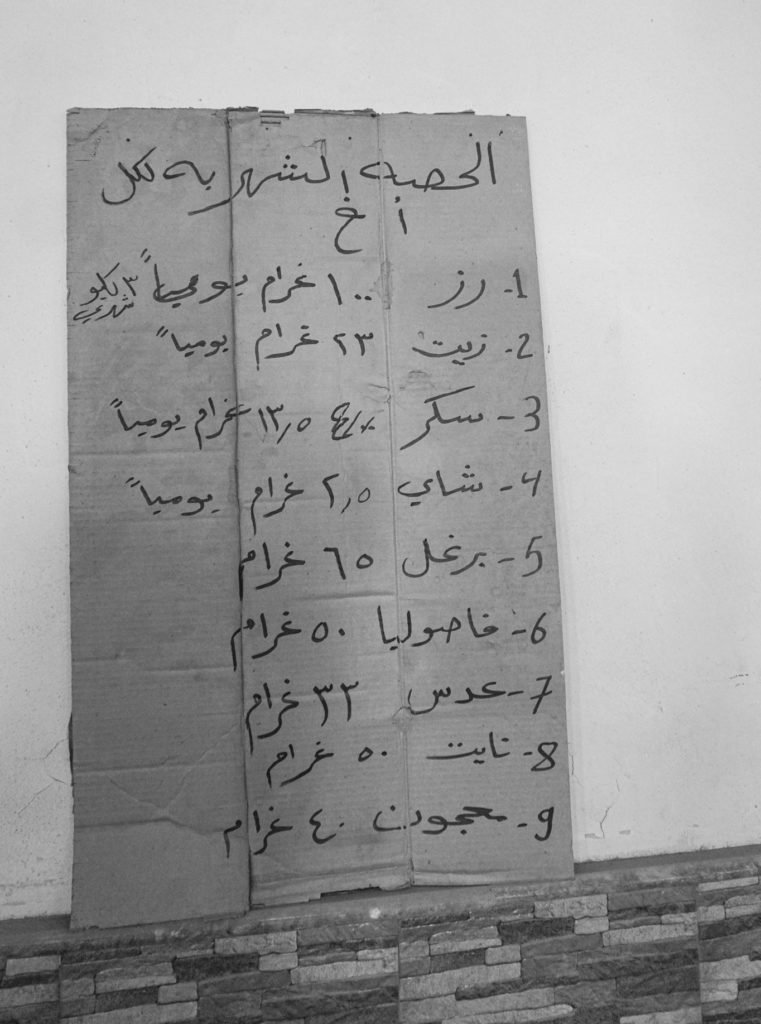 الحصه الشهريه لكل
أ خ
1- رز ١٠٠ غرام يومياً ٣ كيلو شهري
2- زيت ٢٣ غرام يومياً
3- سكر ١٣,٥ غرام يومياً
4- شاي ٢,٥ غرام يومياً
5- برغل ٦٥ غرام
6- فاصوليا ٥٠ غرام
7- عدس ٣٣ غرام
8- تايت ٥٠ غرام
9- معجون ٤٠ غرام